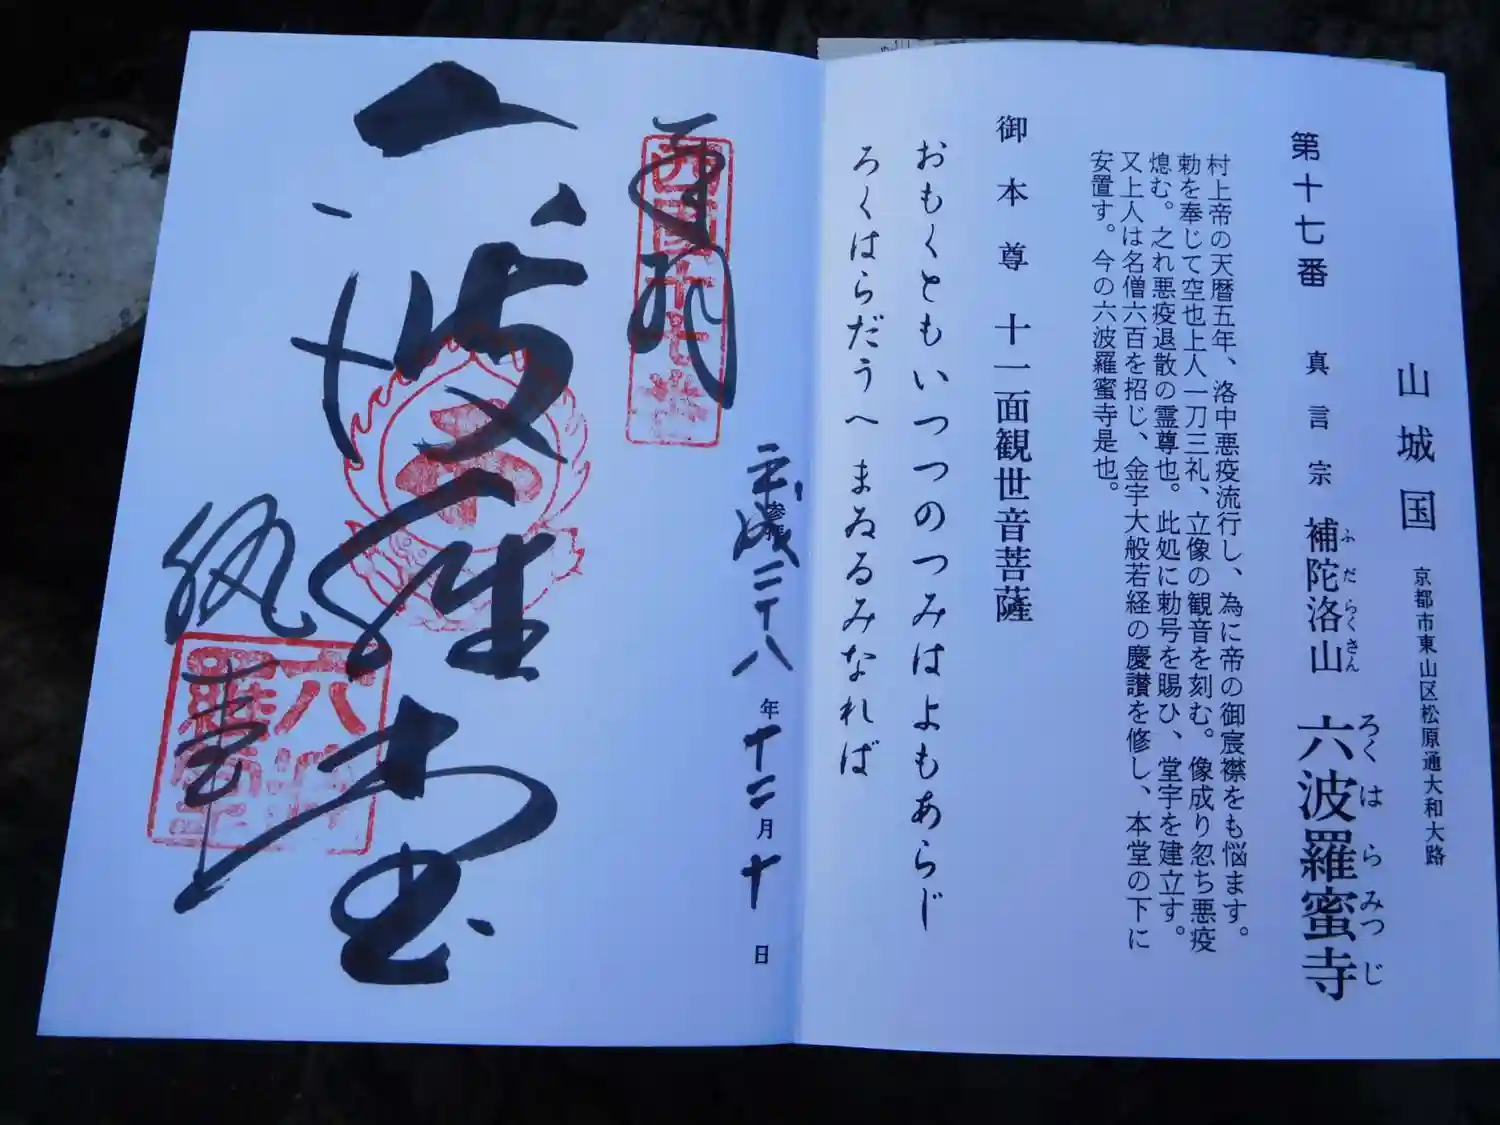 山城国 京都市東山区松原通大和大路
第十七番 真言宗 補陀洛山 六波羅蜜寺
ふだらくさん ろくはらみつじ
村上帝の天暦五年、洛中悪疫流行し、為に帝の御宸襟をも悩ます。
勅を奉じて空也上人一刀三礼、立像の観音を刻む。像成り忽ち悪疫
熄む。之れ悪疫退散の霊尊也。此処に勅号を賜ひ、堂宇を建立す。
又上人は名僧六百を招じ、金字大般若経の慶讃を修し、本堂の下に
安置す。今の六波羅蜜寺是也。
御本尊 十一面観世音菩薩
おもくともいつつのつみはよもあらじ
ろくはらだうへまゐるみなれば
平成二十八年十二月十日
参拝
奉拝
西国十七番
六波羅堂